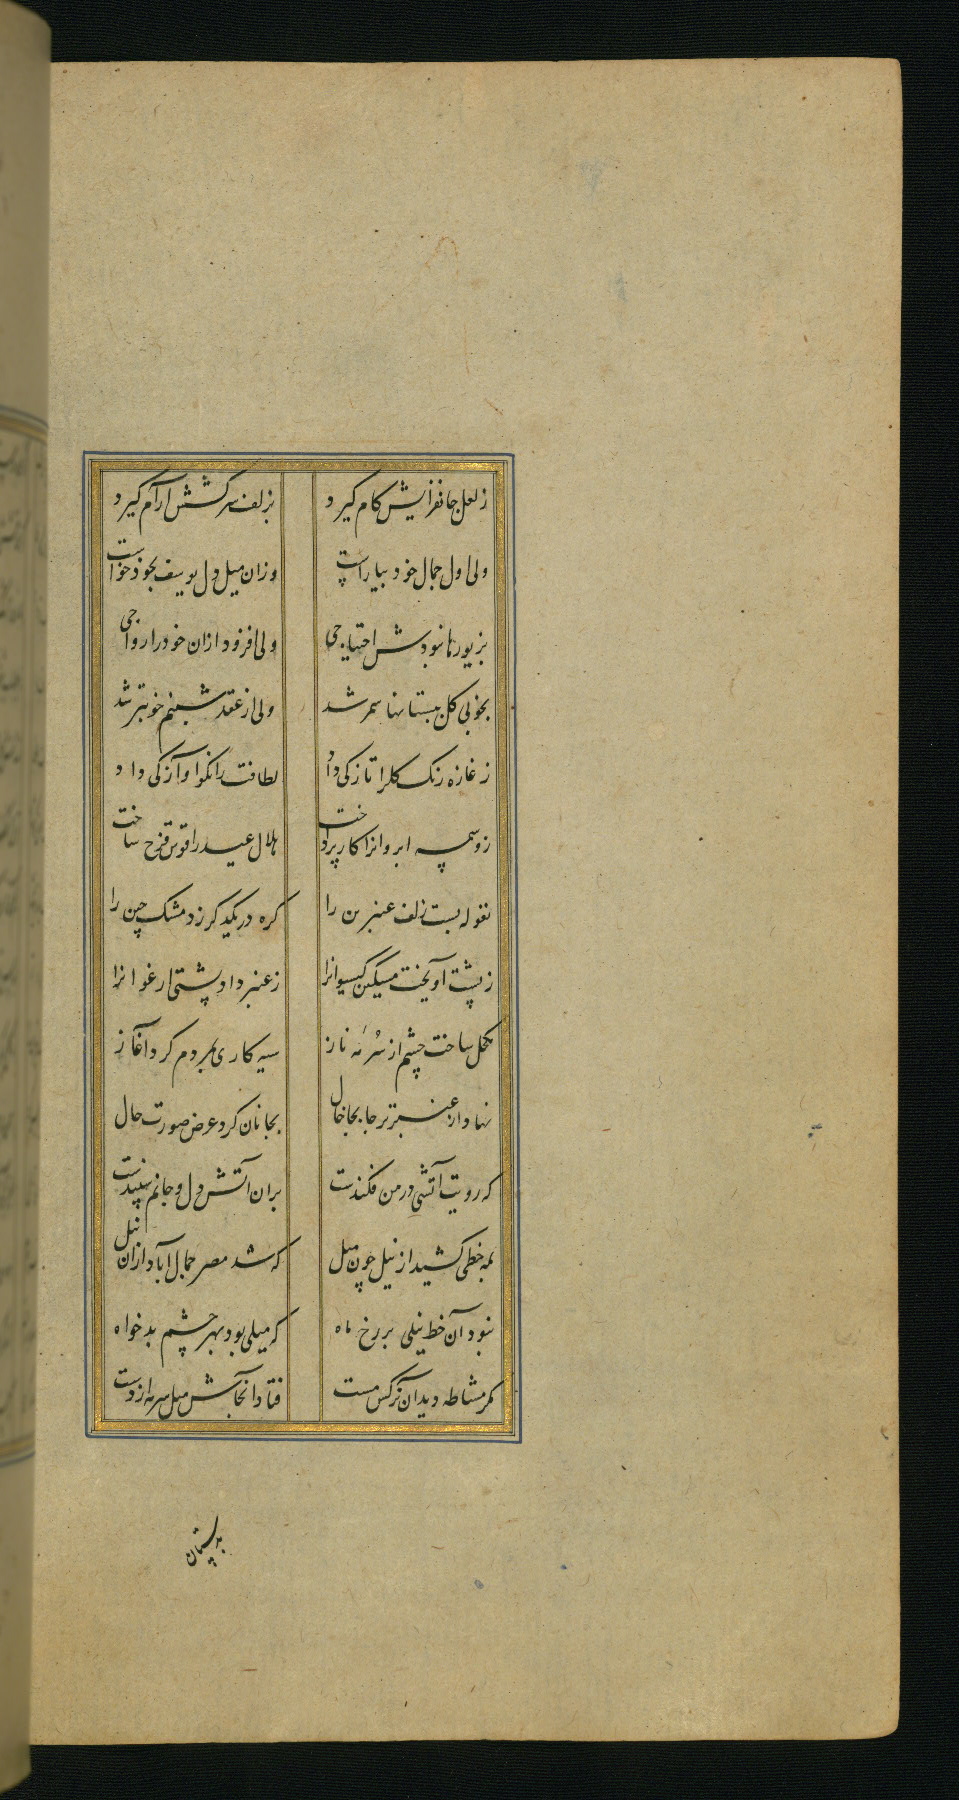 ز لعل جانفزایش کام کیرد بزلف سرکشش ارام کیرد
ولی اول جمال خود بیاراست وزان میل دل یوسف بخود خواست
بزیورها نبودش احتیاجی ولی افزود ازان خود را رواجی
بخوبی کل ببستانها سمر شد ولی از عقد شبنم خوبتر شد
ز غازه رنک کلرا تازکی داد لطافت را نکو آوازکی داد
ز وسمه ابروانرا کار پرداخت هلال عید را قوس قزح ساخت
نغوله بست زلف عنبرین را کره در یکدیکر زد مشک چین را
ز پشت آویخت مشکین کیسوانرا ز عنبر داد پشتی ارغوانرا
مکحل ساخت چشم از سُرمَه ناز سیه کاری بمردم کرد آغاز
نهاد از عنبر تر جا بجا خال بجانان کرد عرض صورت حال
که رویت آتشی در من فکندست بران آتش دل و جانم سپندست
بمه خطی کشید از نیل چون میل که شد مصر جمال آباد ازان نیل
نبود آن خط نیلی بر رخ ماه که میلی بود بهر چشم بدخواه
مکر مشاطه دید آن نرکس مست فتاد انجاش میل سرمه از دست
بدستان